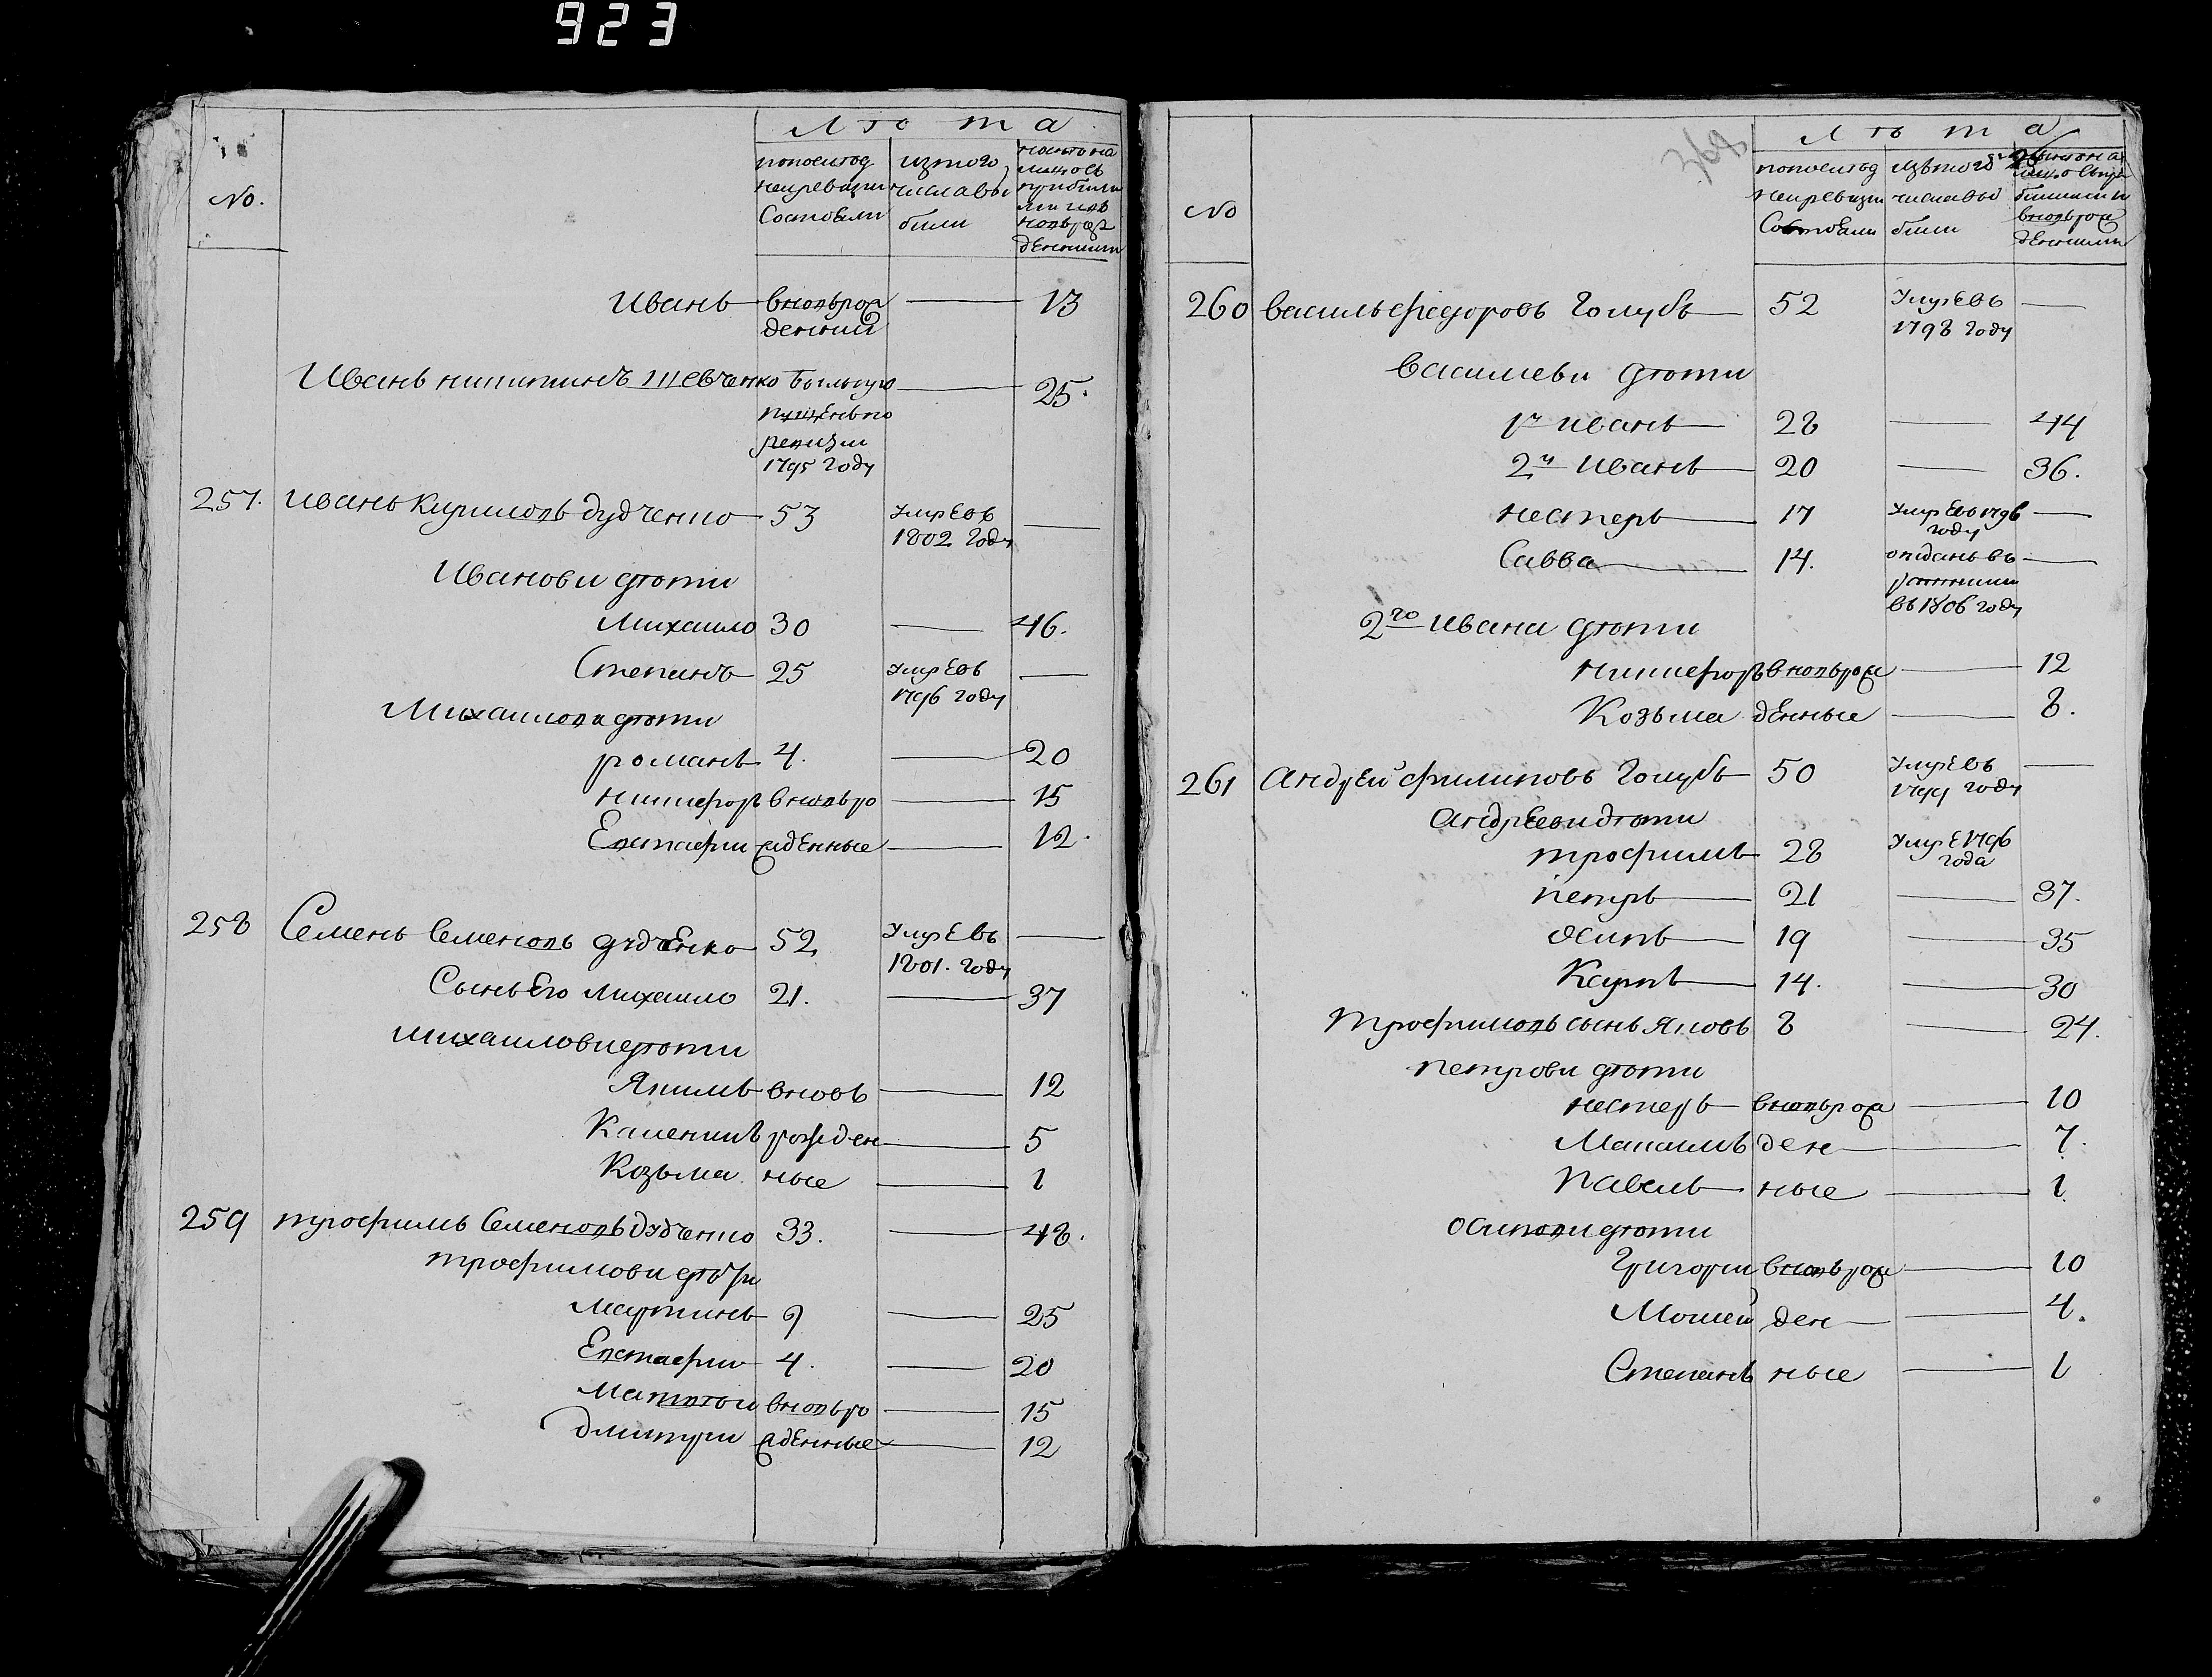 923
Лѣта
No.
по последней ревизии состояли
из того числа выбыли
ныне на лицо съ прибылыми и вновь рожденными
Иванъ вновь рожденний — 13
Иванъ никитинъ Шевченко — 25.
ревизи
1795 году
257. Иванъ Кириловъ дудченко 53 умре въ —
1802 году
Иванови дѣти
Михаило 30 — 46.
Степанъ 25 умре въ —
1796 году
Михаилови дѣти
романъ 4. — 20
никифоръ вновьро — 15
Евстафи жденные — 12.
258 Семенъ Семеновъ дудченко 52 умре въ —
1801. году
Сынъ Его Михаило 21. — 37
Михаилови дѣти
Якимъ вновь — 12
Каленикъ рожден — 5
Козьма ные — 1
259 трофимъ Семеновъ дудченко 33. — 48.
трофимови дѣти
Мартинъ 9 — 25
Евстафии 4. — 20
Матвѣи вновьро — 15
Дмитри жденные — 12
369
Лѣта
No
по последней ревизии состояли
изъ того числа выбыли
260 василь федоровъ Голубъ 52 умре въ —
1798 году
васильеви дѣти
1й иванъ 28 — 44
2й Иванъ 20 — 36.
нестеръ 17 умре въ 1796 —
году
Савва 14. отданъ въ —
въ 1806 году
2го ивана дѣти
никифоръ вновьрож — 12
Козьма денные — 8.
261 андрей филиповъ Голубъ 50 умре въ —
1799 году
андрееви дѣти
трофимъ 28 умре 1796
года
петръ 21 — 37.
осипъ 19 — 35
Карпъ 14. — 30
трофимовъ сынъ яковъ 8 — 24.
петрови дѣти
нестеръ вновьрож — 10
Мануилъ ден — 7.
Павелъ ные — 1.
осипови дѣти
Григори вновьрож — 10
Мосией ден — 4.
Степанъ ные — 1